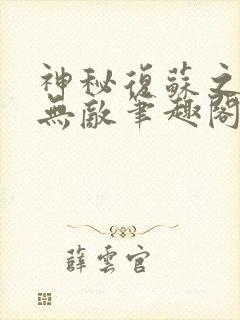 神秘復蘇之
無敵筆趣閣
薛雲官